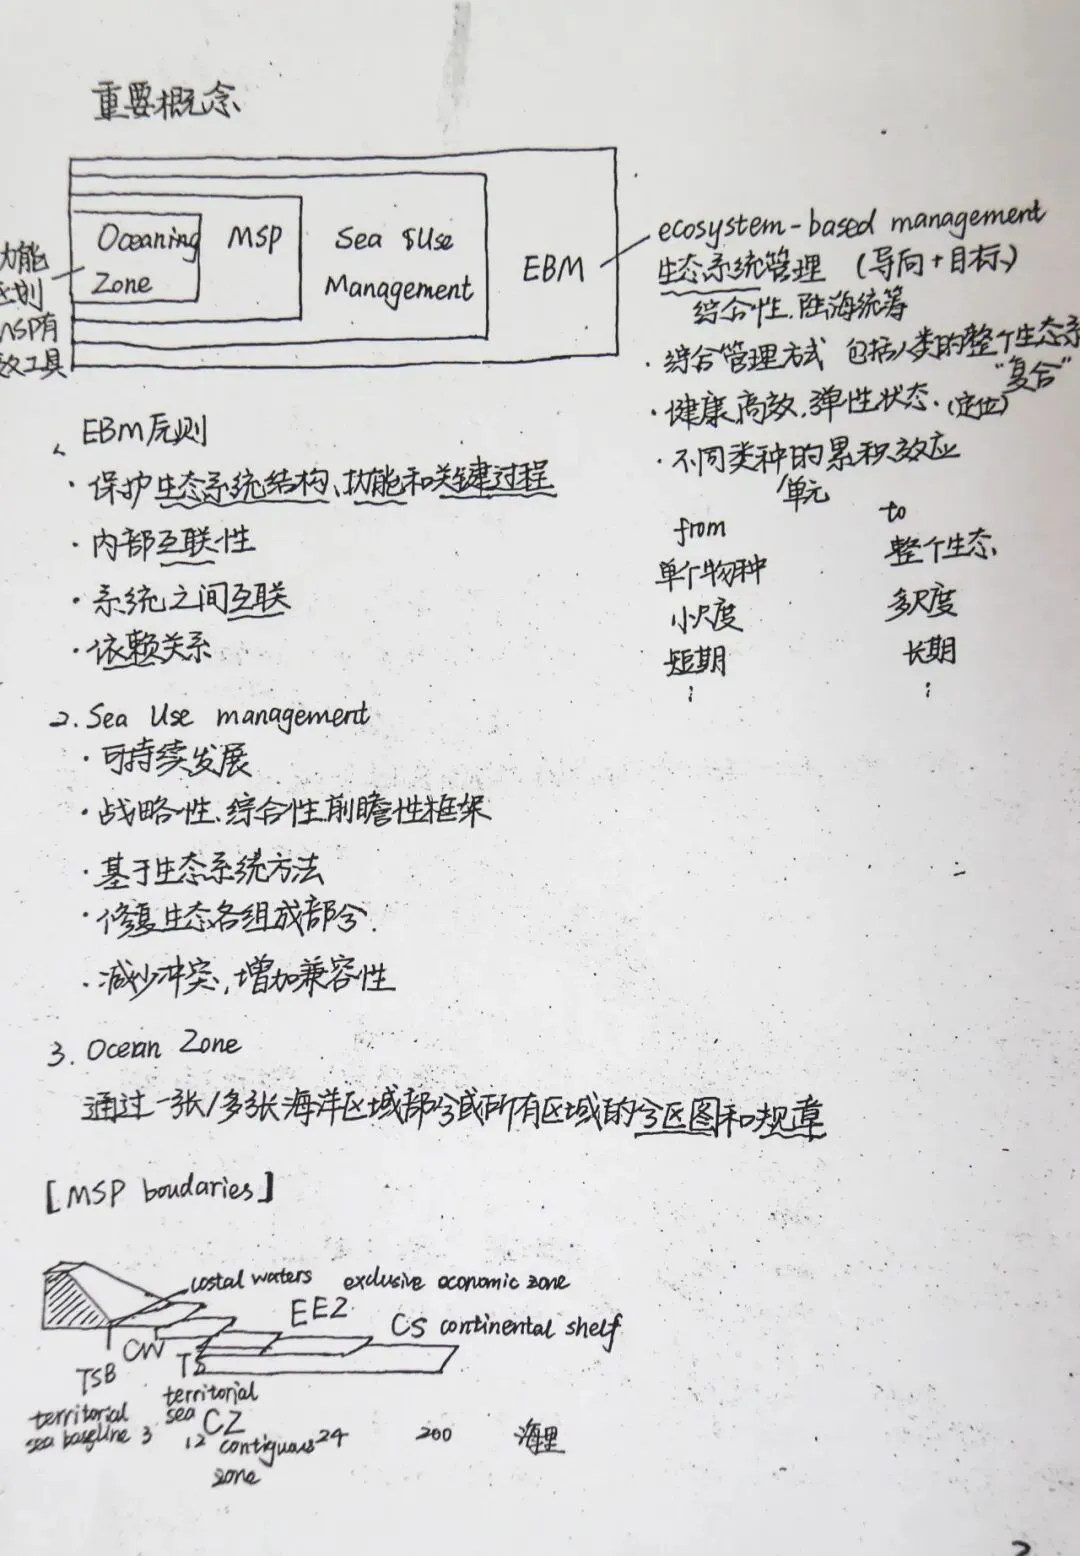 重要概念
Oceaning Zone
MSP
Sea & Use Management
EBM
功能区划
MSP有效工具
ecosystem-based management
生态系统管理 (导向+目标)
综合性、陆海统筹
·综合管理方式 包括人类的整个生态系
"复合"
·健康高效,弹性状态.(定位)
·不同类种的累积效应
单元
from to
单个物种 整个生态
小尺度 多尺度
短期 长期
⋮ ⋮
、EBM原则
·保护生态系统结构、功能和关键过程
·内部互联性
·系统之间互联
·依赖关系
2. Sea Use management
·可持续发展
·战略性、综合性前瞻性框架
·基于生态系统方法
·修复生态各组成部分.
·减少冲突,增加兼容性
3. Ocean Zone
通过一张/多张海洋区域部分或所有区域的分区图和规章
[MSP boudaries]
costal waters
exclusive economic zone
EEZ
CS continental shelf
CW
TSB
TS
territorial sea baseline
territorial sea
CZ
contiguous zone
3 12 24 200 海里
2